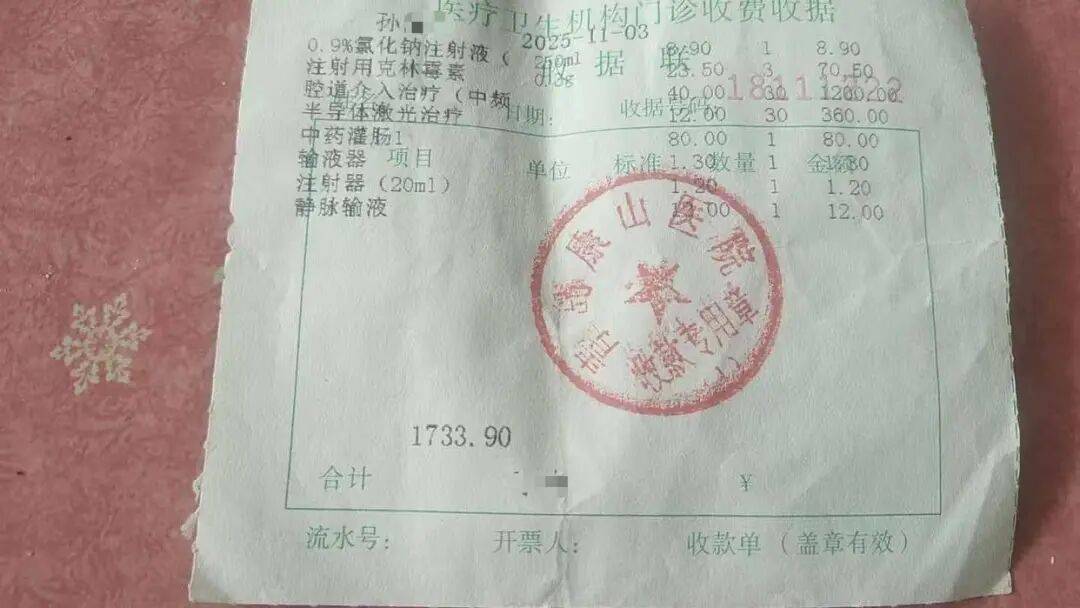 医疗卫生机构门诊收费收据
孙
2025-11-03
收据联
0.9%氯化钠注射液（ 250ml 8.90 1 8.90
注射用克林霉素 23.50 3 70.50
腔道介入治疗（中频 40.00 30 1200.00
半导体激光治疗 12.00 30 360.00
日期： 收据号码
中药灌肠1 80.00 1 80.00
输液器 1.30 1
项目 单位 标准 数量 金额
注射器（20ml） 1.20 1 1.20
静脉输液 12.00 1 12.00
康山医院
收款专用章
1733.90
合计 ¥
流水号： 开票人： 收款单（盖章有效）